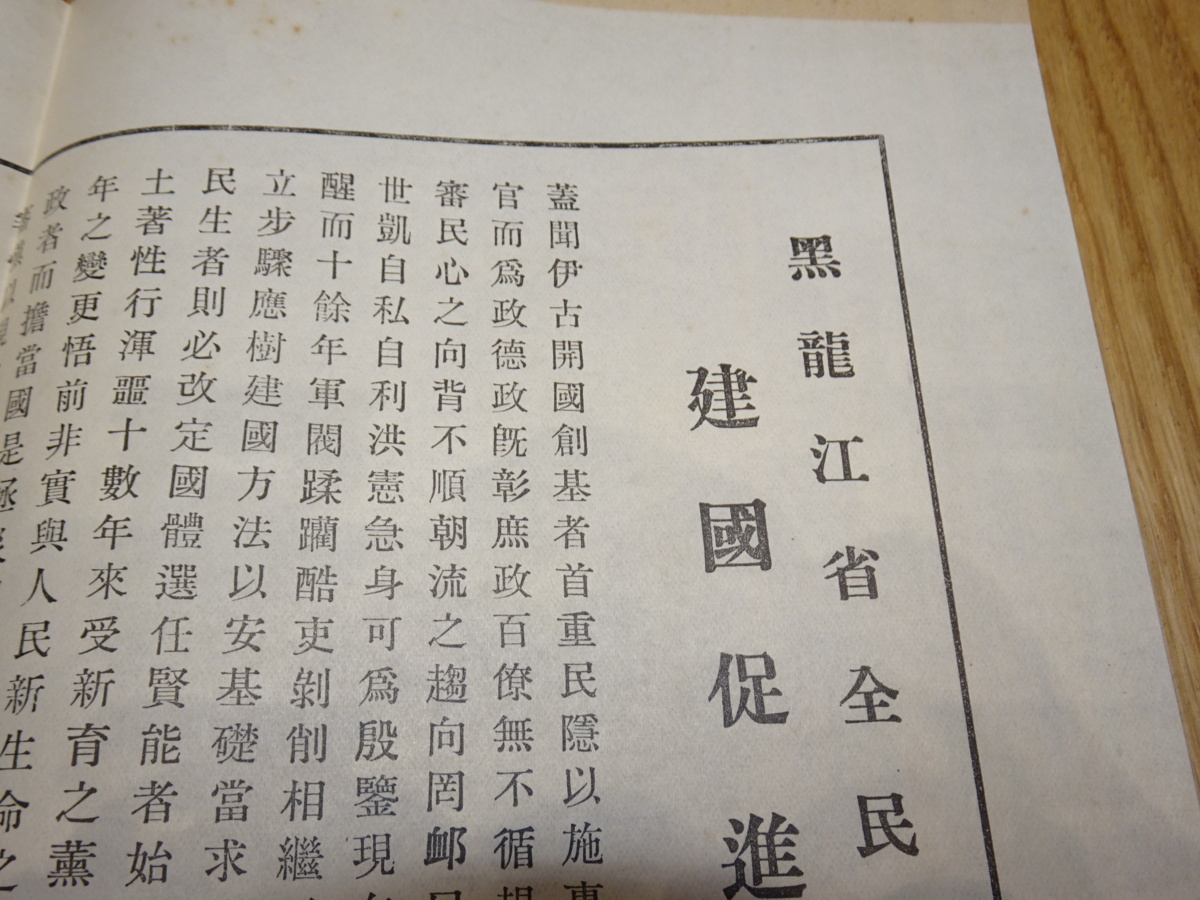 黑龍江省全民
建國促進
蓋聞伊古開國創基者首重民隱以施
官而爲政德政旣彰庶政百僚無不循
審民心之向背不順朝流之趨向罔卹
世凱自私自利洪憲急身可爲殷鑒現
醒而十餘年軍閥蹂躪酷吏剝削相繼
立步驟應樹建國方法以安基礎當求
民生者則必改定國體選任賢能者始
土著性行渾噩十數年來受新育之薰
年之變更悟前非實與人民新生命之
政者而擔當國是